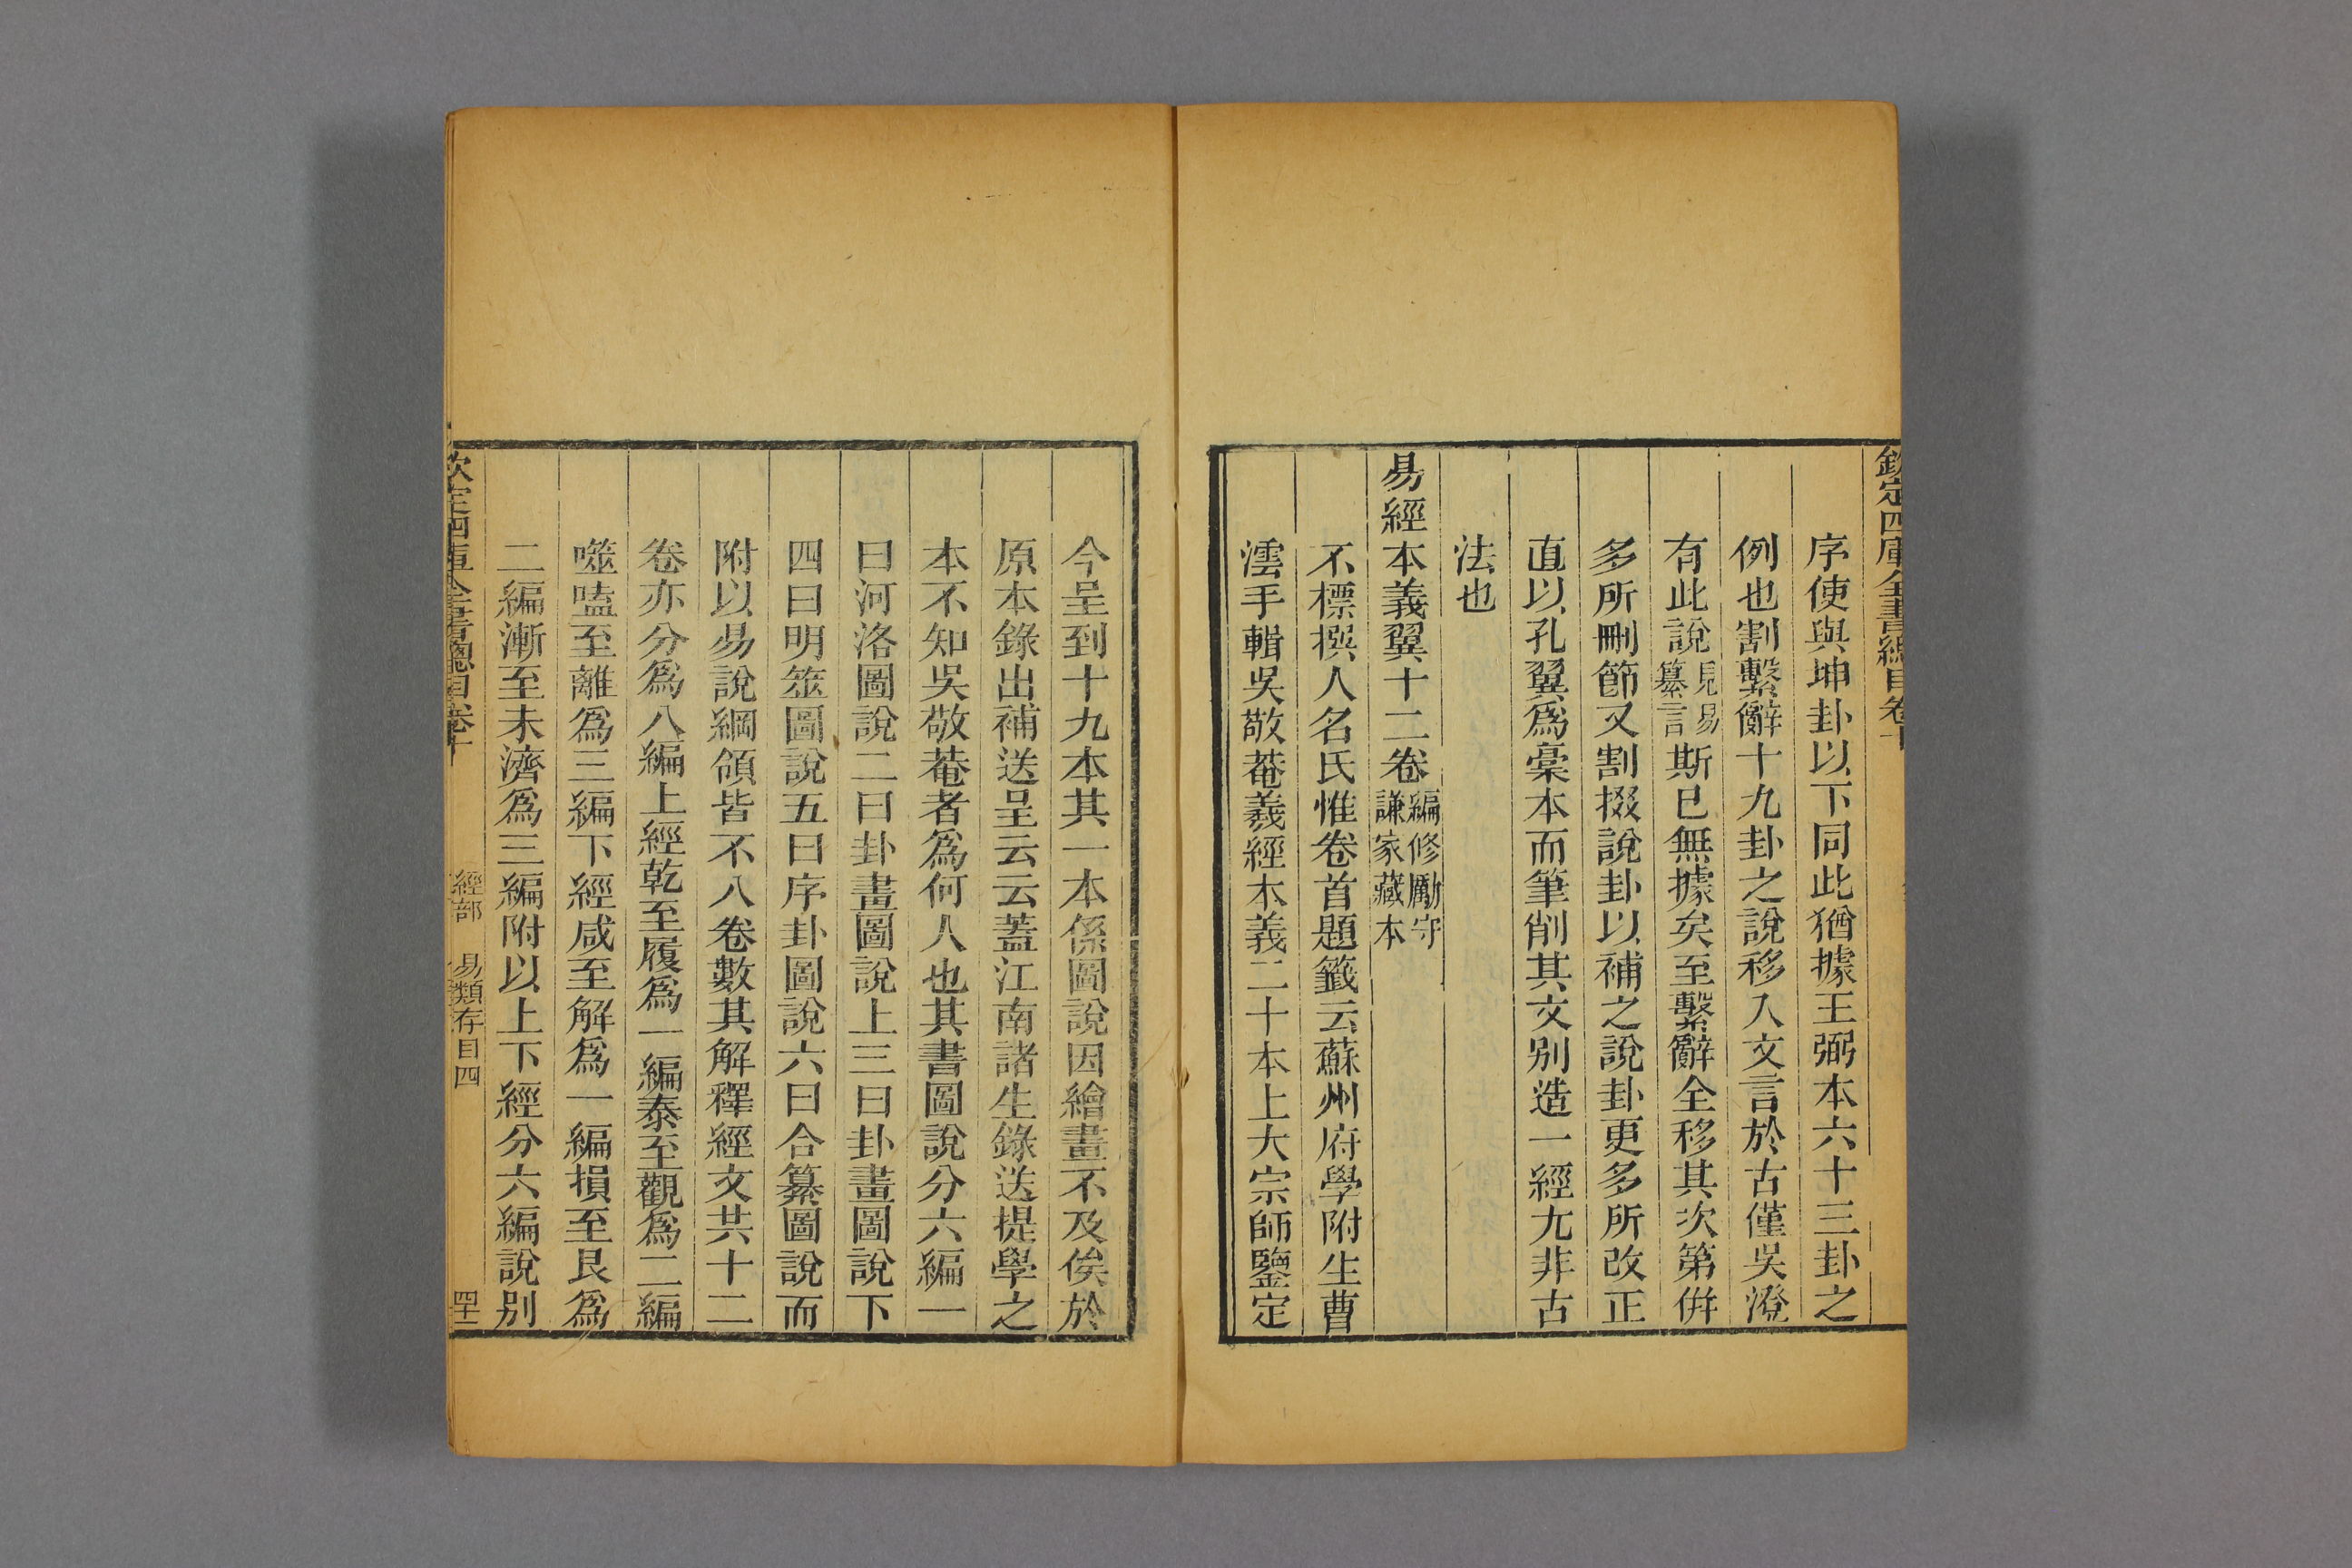 欽定四庫全書總目卷十
序使與坤卦以下同此猶據王弼本六十三卦之
例也割繫辭十九卦之說移入文言於古僅吳澄
有此說見易纂言斯已無據矣至繫辭全移其次第併
多所刪節又割掇說卦以補之說卦更多所改正
直以孔翼爲稾本而筆削其文別造一經尤非古
法也
易經本義翼十二卷編修勵守謙家藏本
不標撰人名氏惟卷首題籤云蘇州府學附生曹
澐手輯吳敬菴義經本義二十本上大宗師鑒定
今呈到十九本其一本係圖說因繪畫不及俟於
原本錄出補送呈云云蓋江南諸生錄送提學之
本不知吳敬菴者爲何人也其書圖說分六編一
曰河洛圖說二曰卦畫圖說上三曰卦畫圖說下
四曰明筮圖說五曰序卦圖說六曰合纂圖說而
附以易說綱領皆不入卷數其解釋經文共十二
卷亦分爲八編上經乾至履爲一編泰至觀爲二編
噬嗑至離爲三編下經咸至解爲一編損至艮爲
二編漸至未濟爲三編附以上下經分六編說別
欽定四庫全書總目卷十
經部 易類存目四
四十一